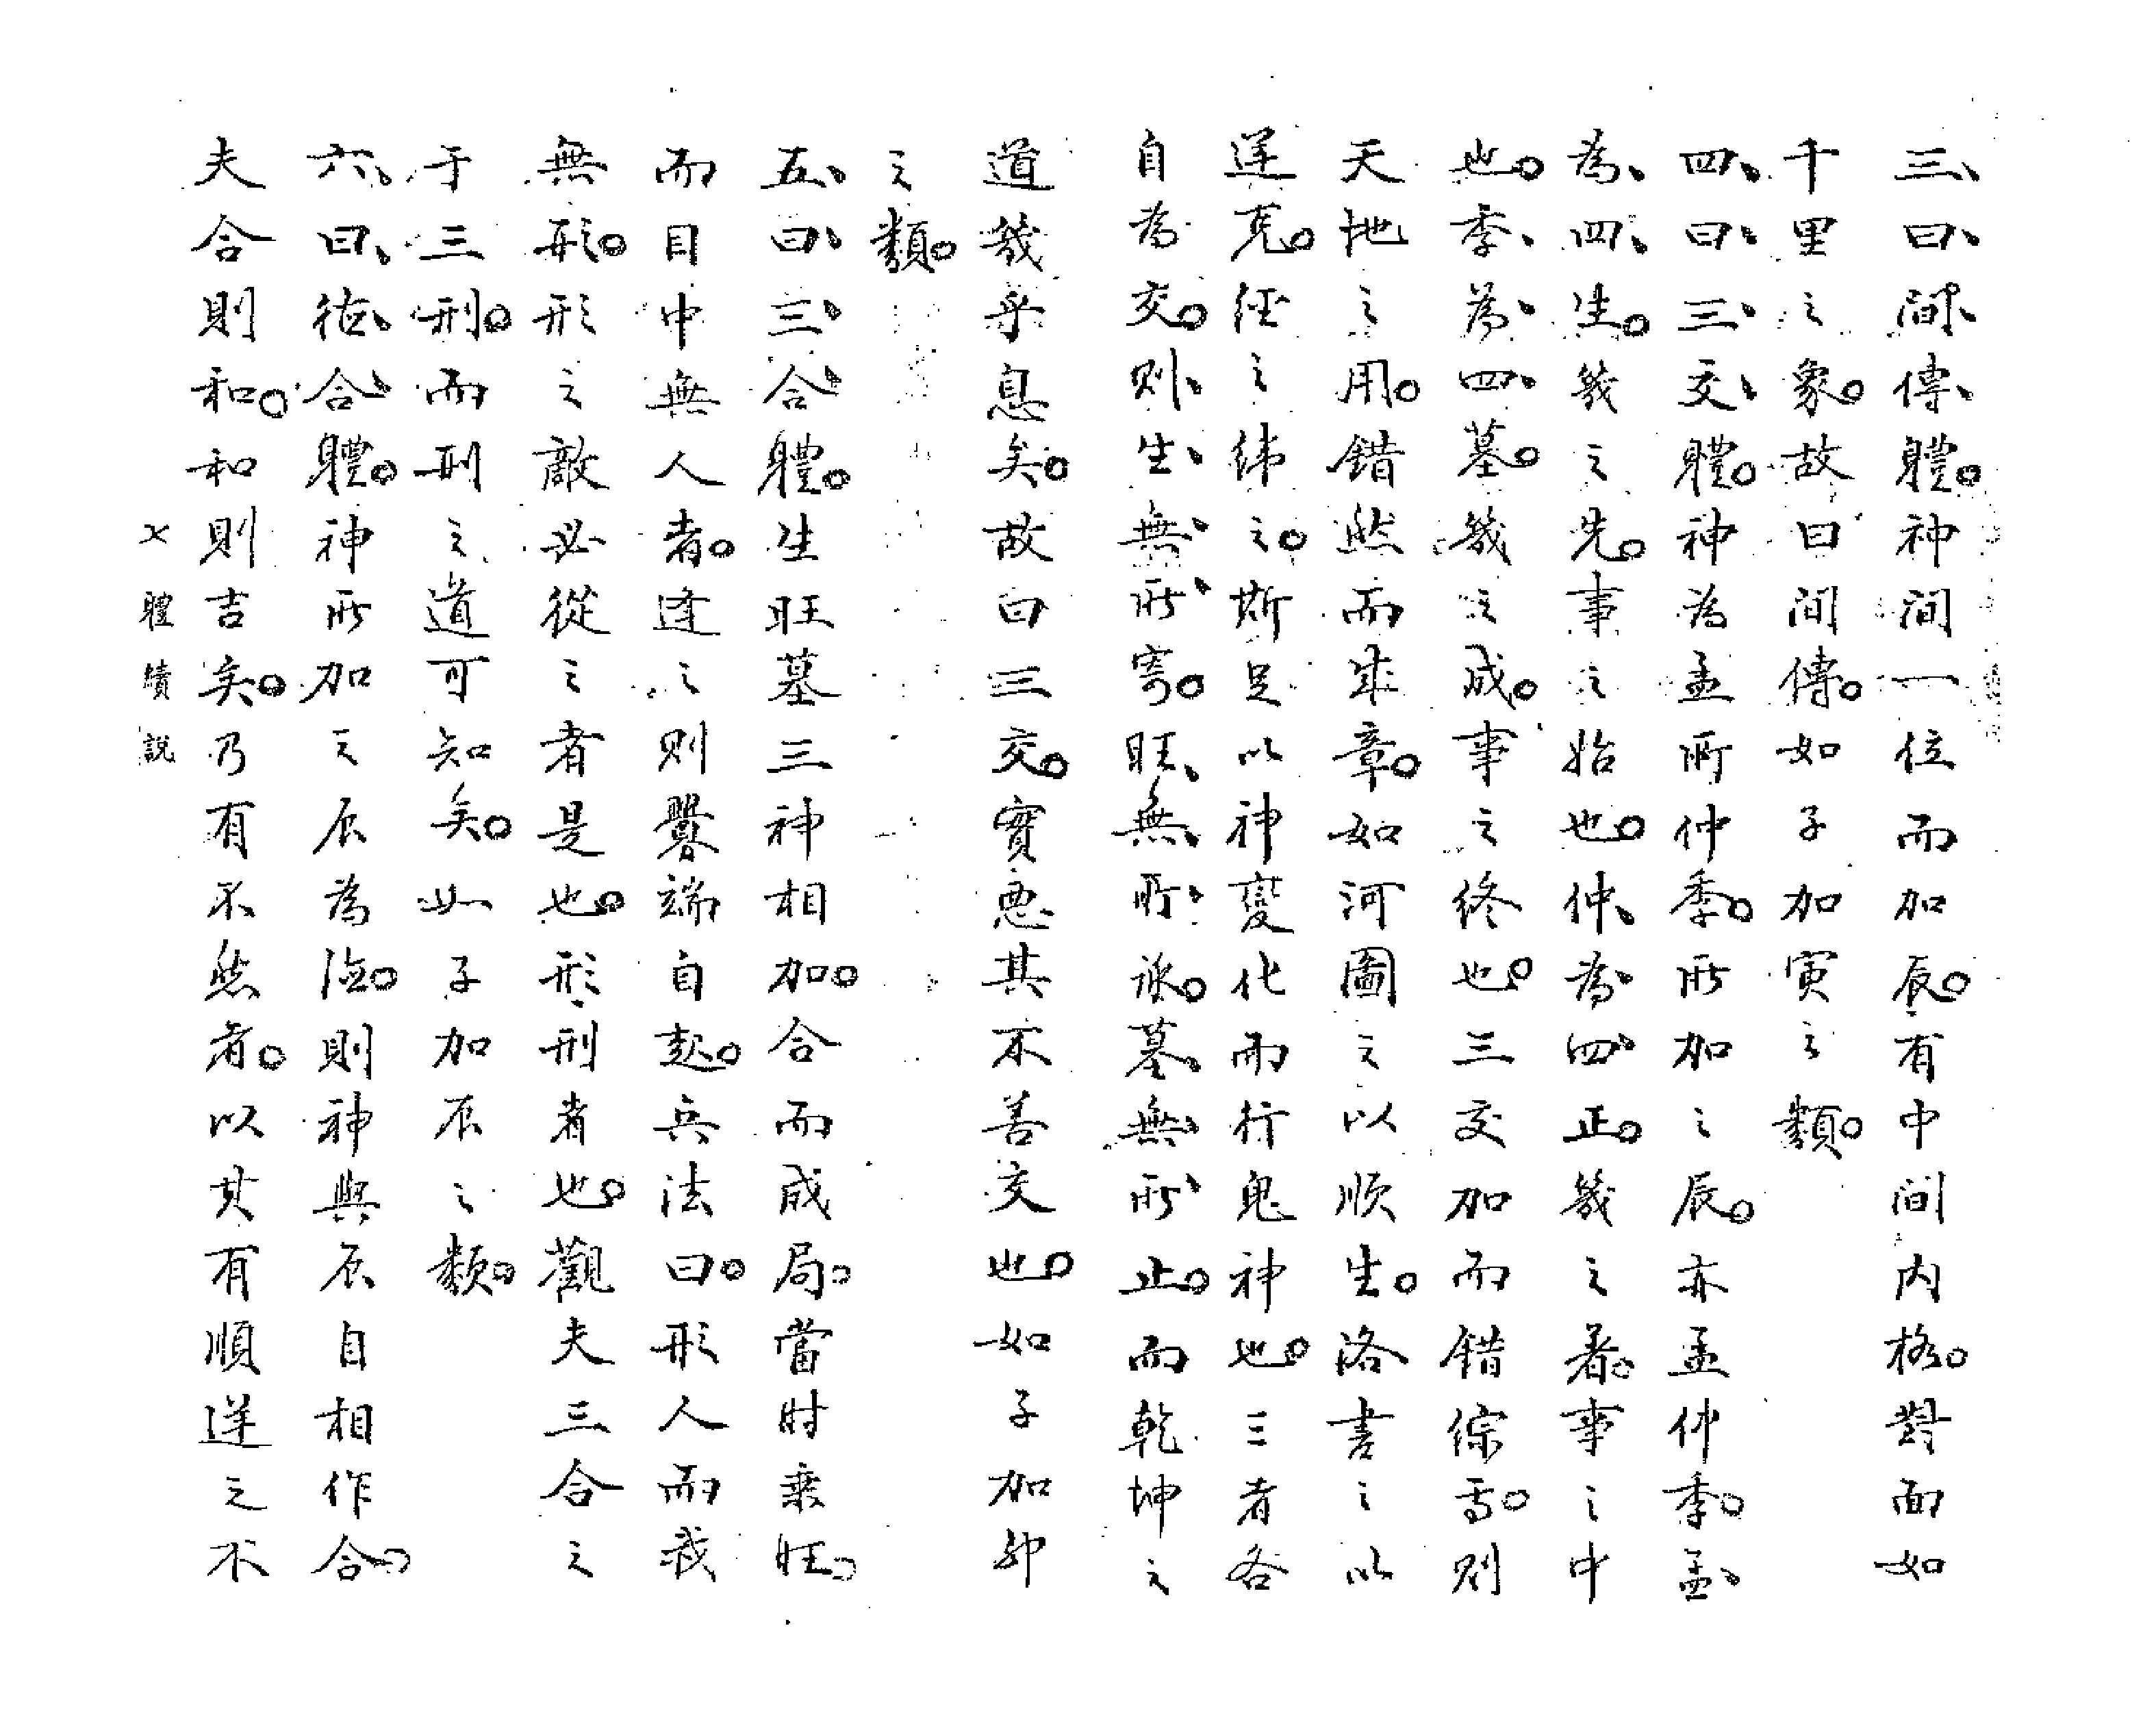 三、曰、間、傳、體。神間一位而加辰。有中間內格。對面如
千里之象。故曰間傳。如子加寅之類。
四、曰、三、交、體。神為孟所仲季。所加之辰。亦孟仲季。孟、
為、四、生。幾之先。事之始也。仲、為、四、正。幾之著。事之中
也。季、為、四、墓。幾之成。事之終也。三交加而錯綜焉。則
天地之用。錯然而成章。如河圖之以順生。洛書之以
逆克。經之緯之。斯足以神變化而行鬼神也。三者各
自為交。則、生、無、所、寄。旺、無、所、承。墓、無、所、止。而乾坤之
道幾乎息矣。故曰三交。實惡其不善交也。如子加卯
之類。
五、曰、三、合、體。生旺墓三神相加。合而成局。當時乘旺。
而目中無人者。逢之則釁端自起。兵法曰。形人而我
無形。形之敵必從之者是也。形刑者也。觀夫三合之
于三刑。而刑之道可知矣。如子加辰之類。
六、曰、德、合、體。神所加之辰為德。則神與辰自相作合。
夫合則和。和則吉矣。乃有不然者。以其有順逆之不
大體續說